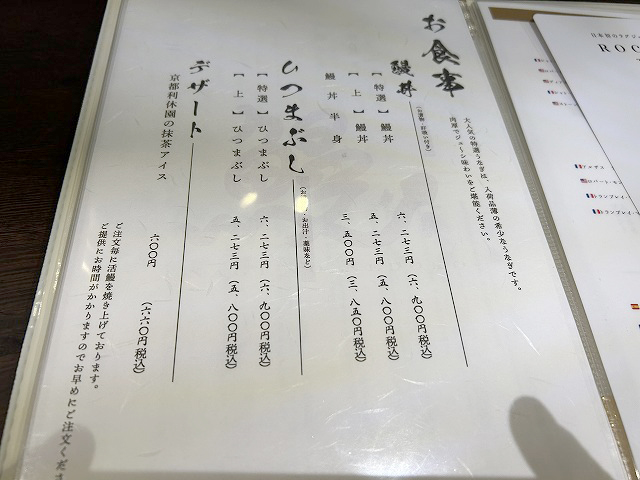 お食事
大人気の特選うなぎは、入荷品薄の希少なうなぎです。
肉厚でジューシ味わいをご堪能ください。
鰻丼
【特選】鰻丼 六、二七三円(六、九〇〇円税込)
【上】鰻丼 五、二七三円(五、八〇〇円税込)
鰻丼半身 三、五〇〇円(三、八五〇円税込)
ひつまぶし
【特選】ひつまぶし 六、二七三円(六、九〇〇円税込)
【上】ひつまぶし 五、二七三円(五、八〇〇円税込)
デザート
京都利休園の抹茶アイス 六〇〇円(六六〇円税込)
ご注文毎に活鰻を焼き上げております。
ご提供にお時間がかかりますのでお早めにご注文くださ
ROC